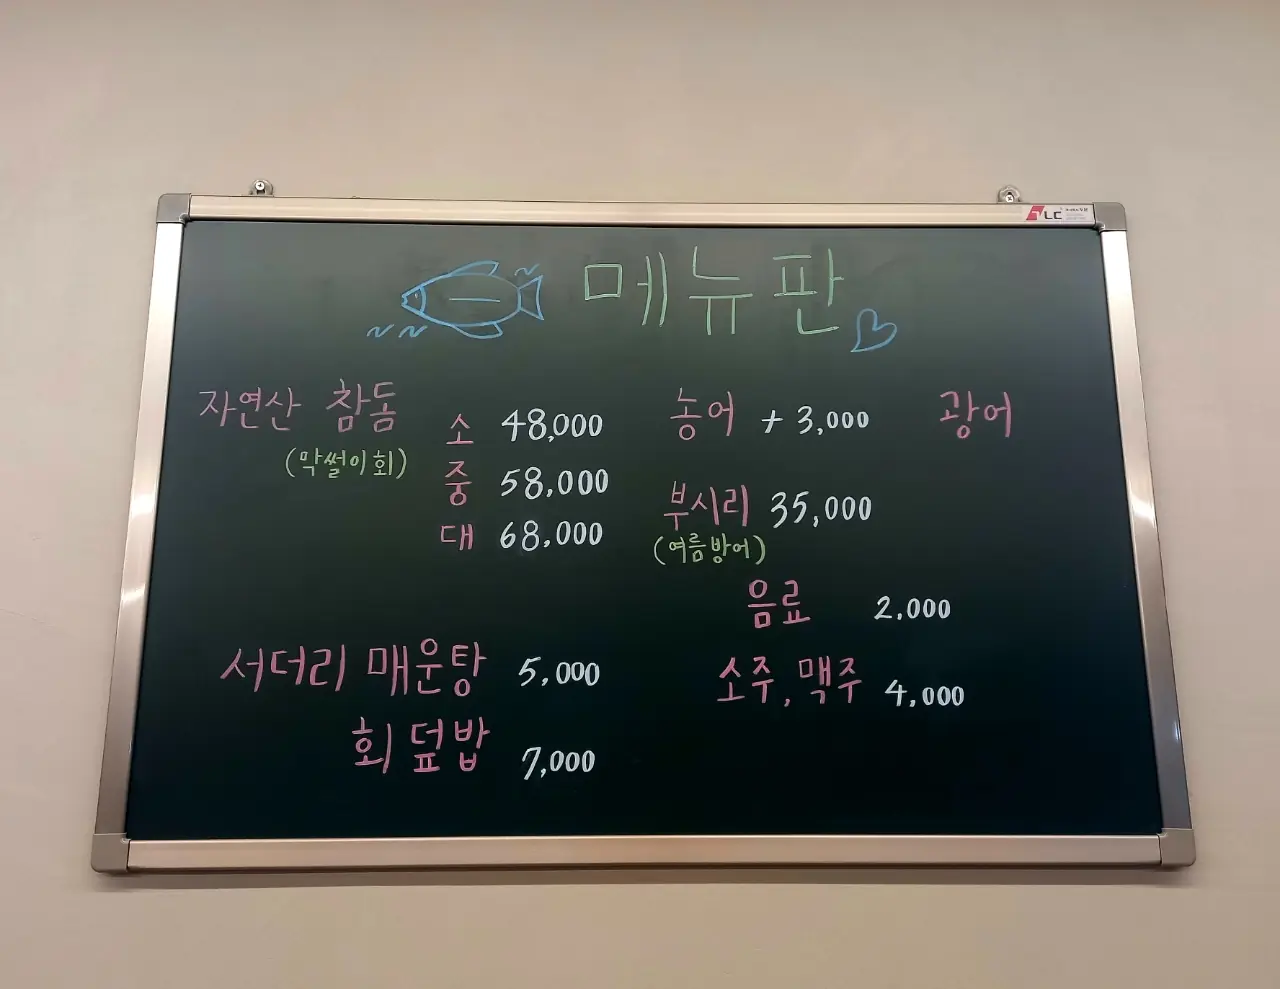 메뉴판
자연산 참돔
(막썰이회)
소 48,000
중 58,000
대 68,000
서더리 매운탕 5,000
회덮밥 7,000
농어 + 3,000
광어
부시리 35,000
(여름방어)
음료 2,000
소주, 맥주 4,000
LC